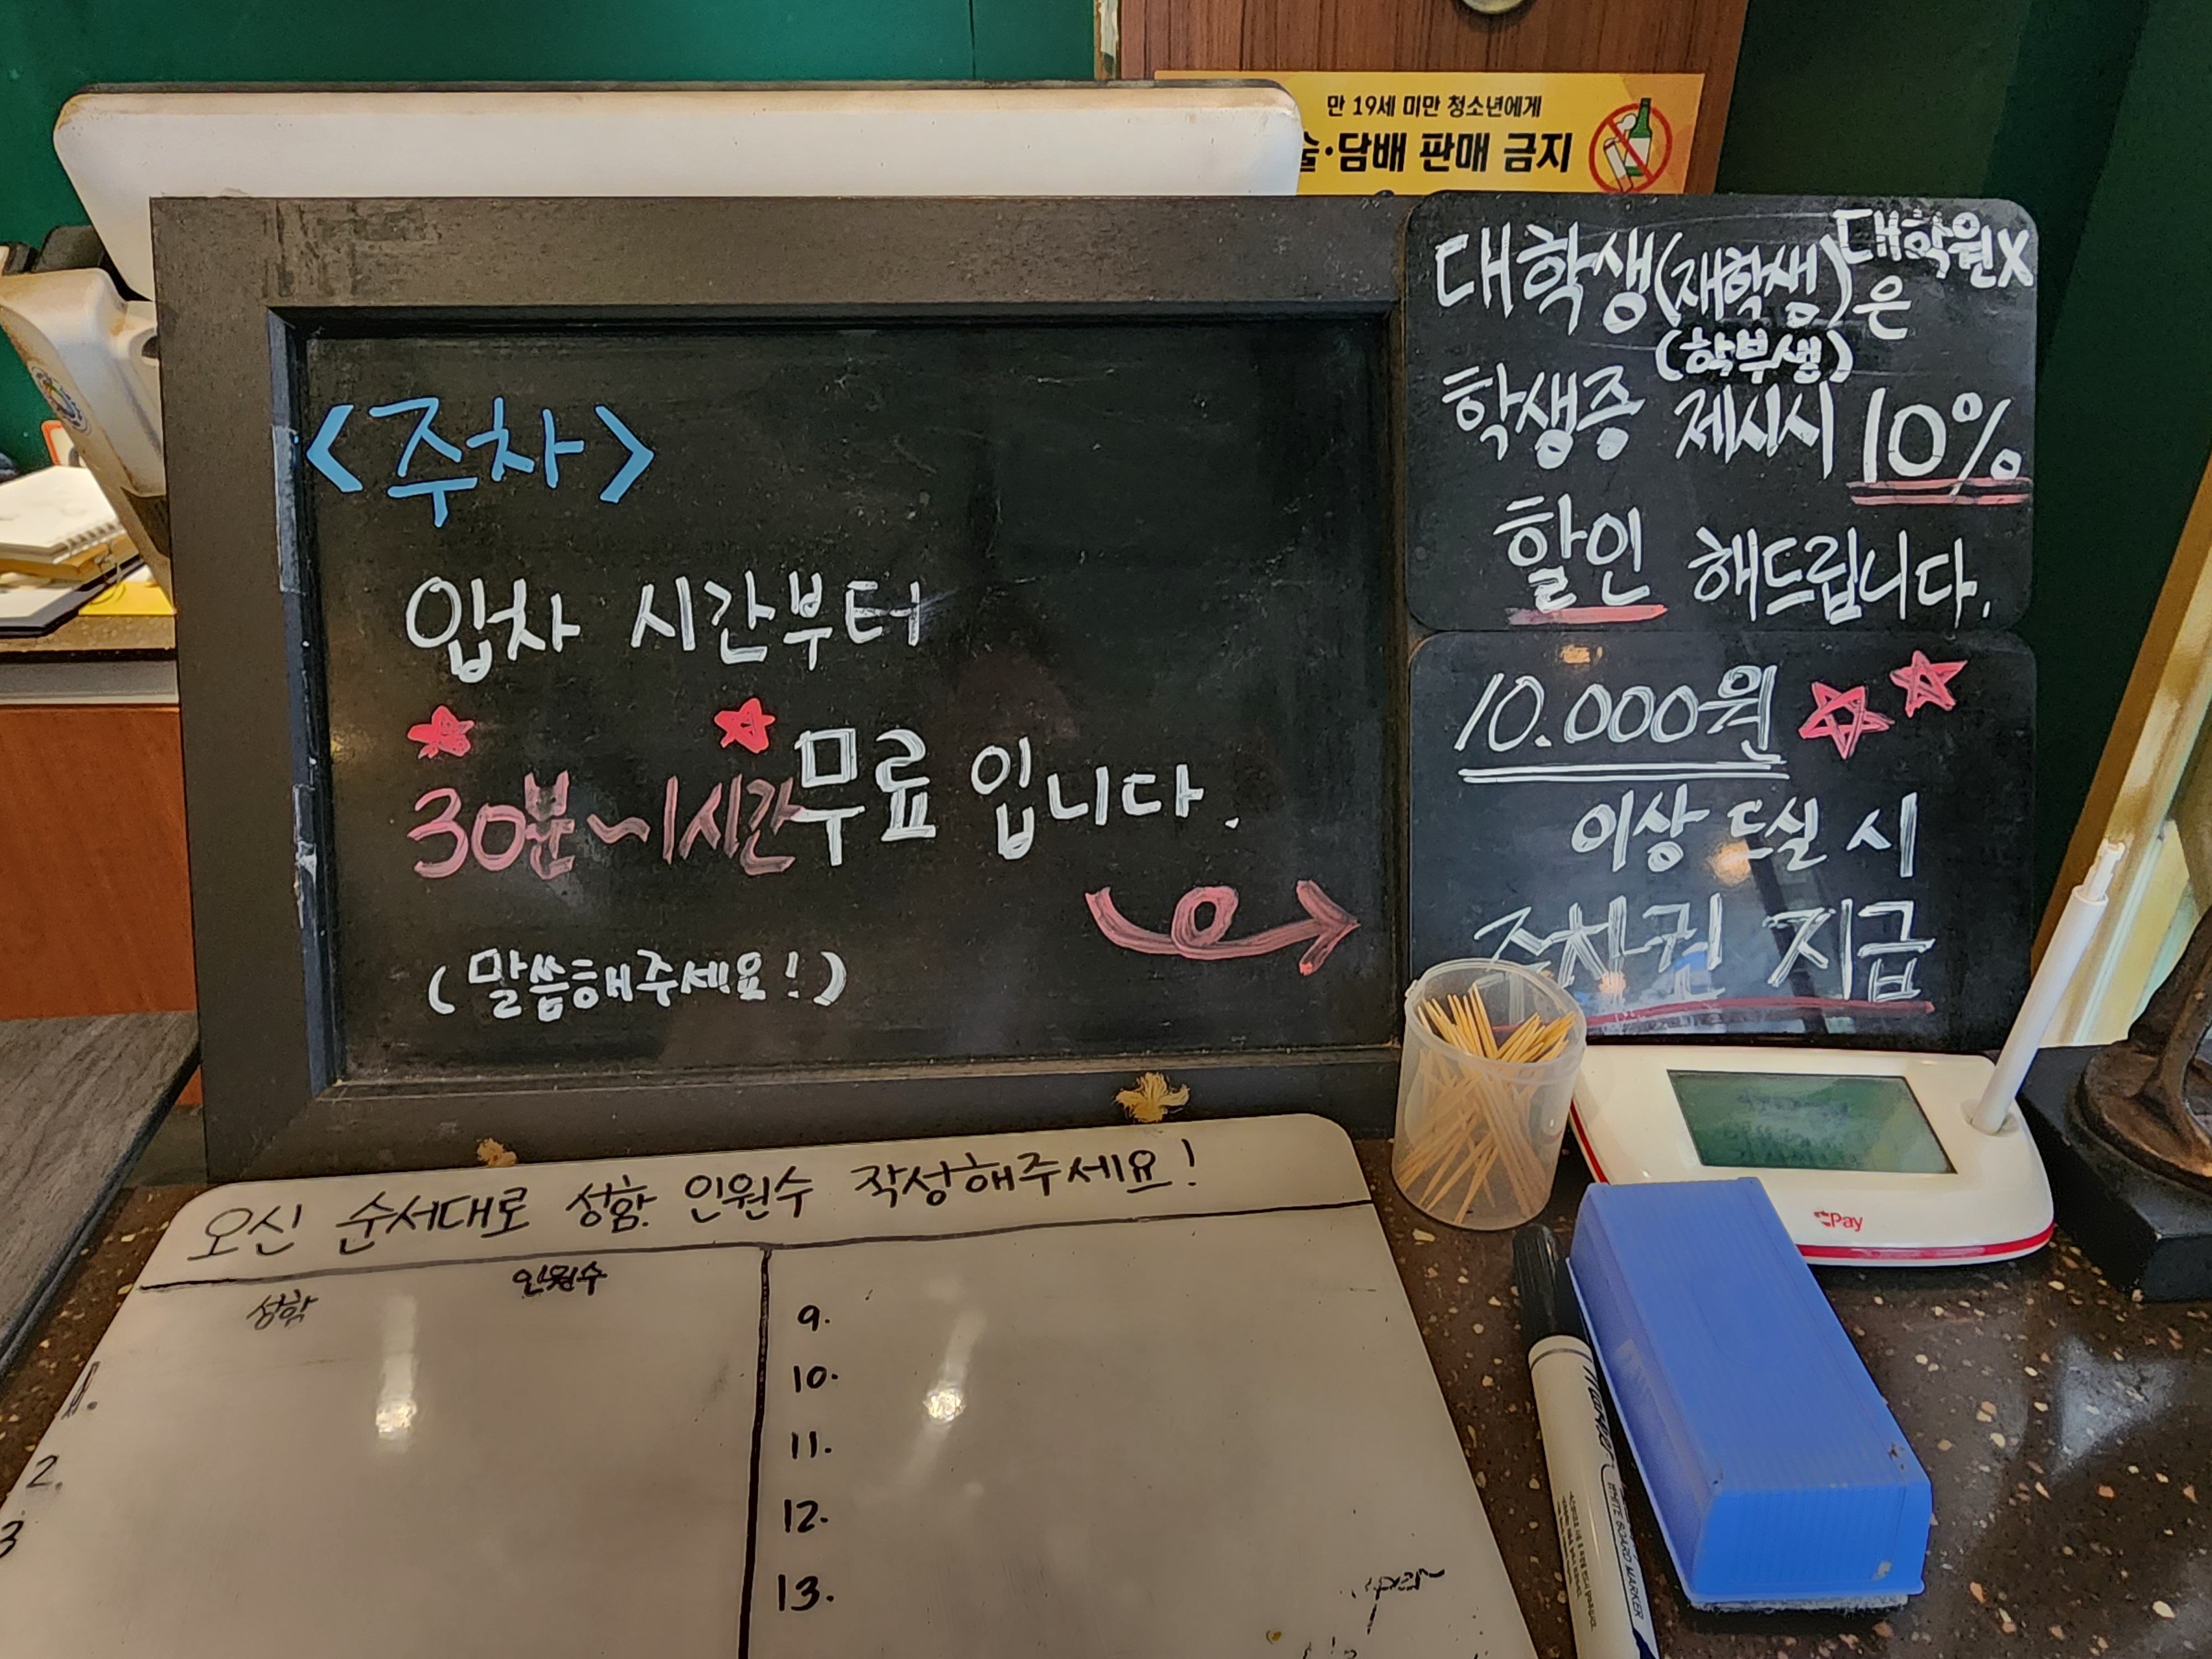 만 19세 미만 청소년에게
술·담배 판매 금지
<주차>
입차 시간부터
30분~1시간무료 입니다.
(말씀해주세요!)
대학원X
대학생(재학생)은
(학부생)
학생증 제시시 10%
할인 해드립니다.
10.000원
이상 드실 시
주차권 지급
오신 순서대로 성함 인원수 작성해주세요!
성함 인원수
1.
2.
3
9.
10.
11.
12.
13.
Pay
WHITE BOARD MARKER